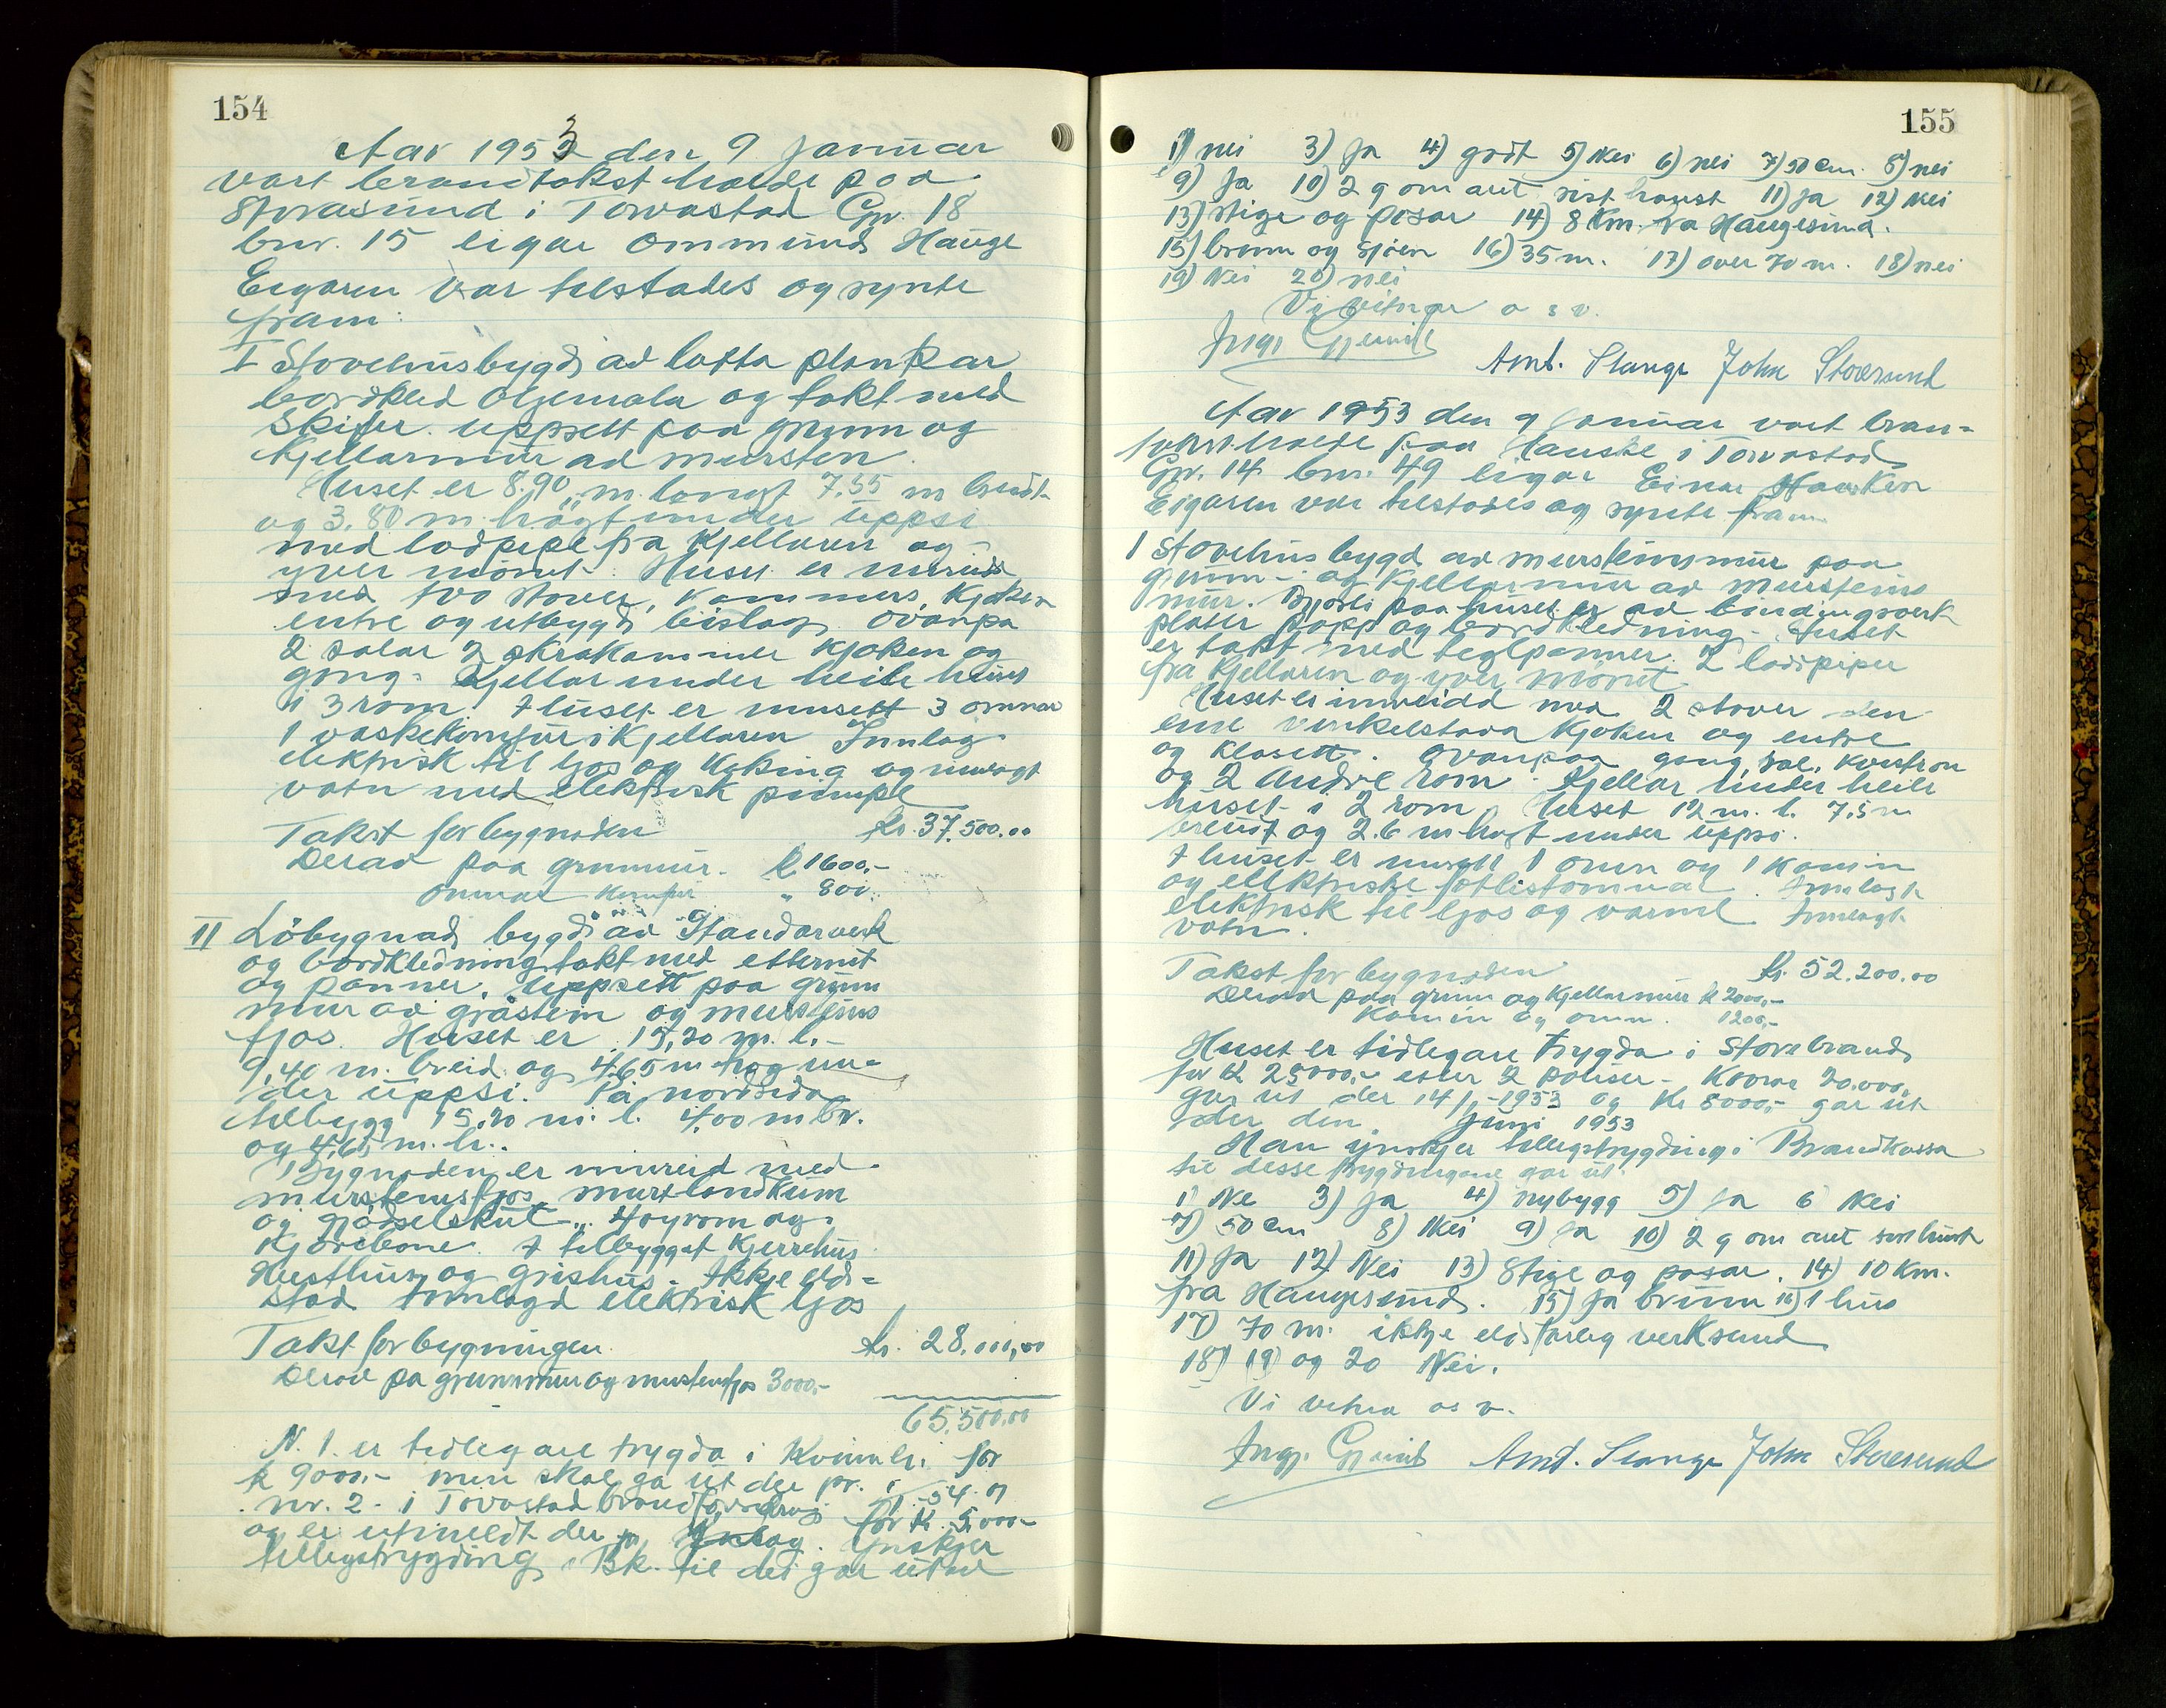 154
Aar 1953 den 9 Januar
vart brandtakst halde paa
Storasund i Torvastad Gnr. 18
bnr. 15 eigar Ommund Hauge
Eigaren var tilstades og synte
fram:
I Stovehus bygd av lafta plankar
bordkled oljemala og takt med
Skifer. uppsett paa grunn og
Kjellarmur av mursten.
Huset er 8.90 m. langt 7.55 m breidt
og 3.80 m. högt under uppsi
med lodpipe fra Kjellaren og
yver mönet. Huset er innreidd
med tvo stover, Kammers, Kjöken
entre og utbygd bislag. Ovanpa
2 salar 2 skrakammer Kjöken og
gang. Kjellar under heile huset
i 3 rom. I huset er innsett 3 omnar
1 vaskekomfur i Kjellaren Innlag
elektrisk til ljos og koking og innlagt
vatn med elektrisk pumpe
Takst for bygnaden kr. 37.500.00
Derav paa grunnmur. kr 1600,-
omnar komfur " 800.
II Löbygnad bygd av Standarverk
og bordkledning takt med etternit
og panner. Uppsett paa grunn
mur av gråstein og murstens
fjos. Huset er 15,20 m. l. -
9,40 m. breid og 4.65 m hög un-
der uppsi. På nordsida
tilbygg 15.20 m. l. 4.00 m br.
og 4,65 m. h..
Bygnaden er innreid med
murstensfjos, murt landkum
og gjödselskut. 4 oyrom og
Kjörebane. I tilbygget Kjerrehus
Hesthus og grishus. Ikkje eld-
stad Innlagd elektrisk ljos
Takst for bygningen kr. 28.000,00
Derav pa grunnmur og murstensfjos 3000.-
65.500.00
N. 1. er tidlegare trygda i for
kr 9000.- men skal ga ut der pr. 1/1 -54. og
nr. 2. i Torvastad brandforsikring for kr. 5.000-
og er utmeldt der Ynskjer
tilleggstrygding i Bk. til dei gar ut
155
1) nei 3) Ja 4) godt 5) Nei 6) nei 7) 50 cm. 8) nei
9) Ja 10) 2 g om aret sist haust 11) Ja 12) Nei
13) stige og posar 14) 8 Km. fra Haugesund.
15) brunn og Sjöen 16) 35 m. 17) over 70 m. 18) nei
19) Nei 20) nei
Vi vitnar o s v.
Amt. Stange John Storesund
Aar 1953 den 9 Januar vart bran-
takst halde paa Hauske i Torvastad
Gnr. 14 bnr. 49 eigar Einar Hausken
Eigaren var tilstades og synte fram
1 Stovehus bygd av murstensmur paa
grunn- og Kjellarmur av murstens
mur. paa huset er av bindingsverk
plater papp og bordkledning. Huset
er takt med teglpanner. 2 lodpiper
fra Kjellaren og yver mönet.
Huset er innreidd med 2 stover den
eine vinkelstova Kjöken og entre
og Klosett. Ovanpaa gang, sal, kvistrom
og 2 andre rom. Kjellar under heile
huset i 2 rom. Huset 12 m. l. 7.5 m
breidt og 2.6 m högt under uppsi.
I huset er innsett 1 omn og 1 kamin
og elektriske fotlistomnar. Innlagt
elektrisk til ljos og varme Innlagt
vatn.
Takst for bygnaden kr. 52.200.00
Derav paa grunn og Kjellarmur kr 2000,-
Kamin og omn. 1200,-
Huset er tidlegare trygda i Storebrand
for kr 25000.- etter 2 poliser - 20.000,
gar ut der 14/1-1953 og Kr 5000,- gar ut
der den Juni 1953
Han ynskjer tilleggstrygding i Brandkassa
til desse trygdingane gar ut.
1) Ne 3) Ja 4) nybygg 5) Ja 6 Nei
7) 50 cm 8) Nei 9) Ja 10) 2 g om aret
11) Ja 12) Nei 13) Stige og posar. 14) 10 Km.
fra Haugesund. 15) Ja brunn 16) 1 hus
17) 70 m. ikkje eldsfarleg verksemd
18) 19) og 20 Nei.
Vi vitna os v.
Amt. Stange John Storesund